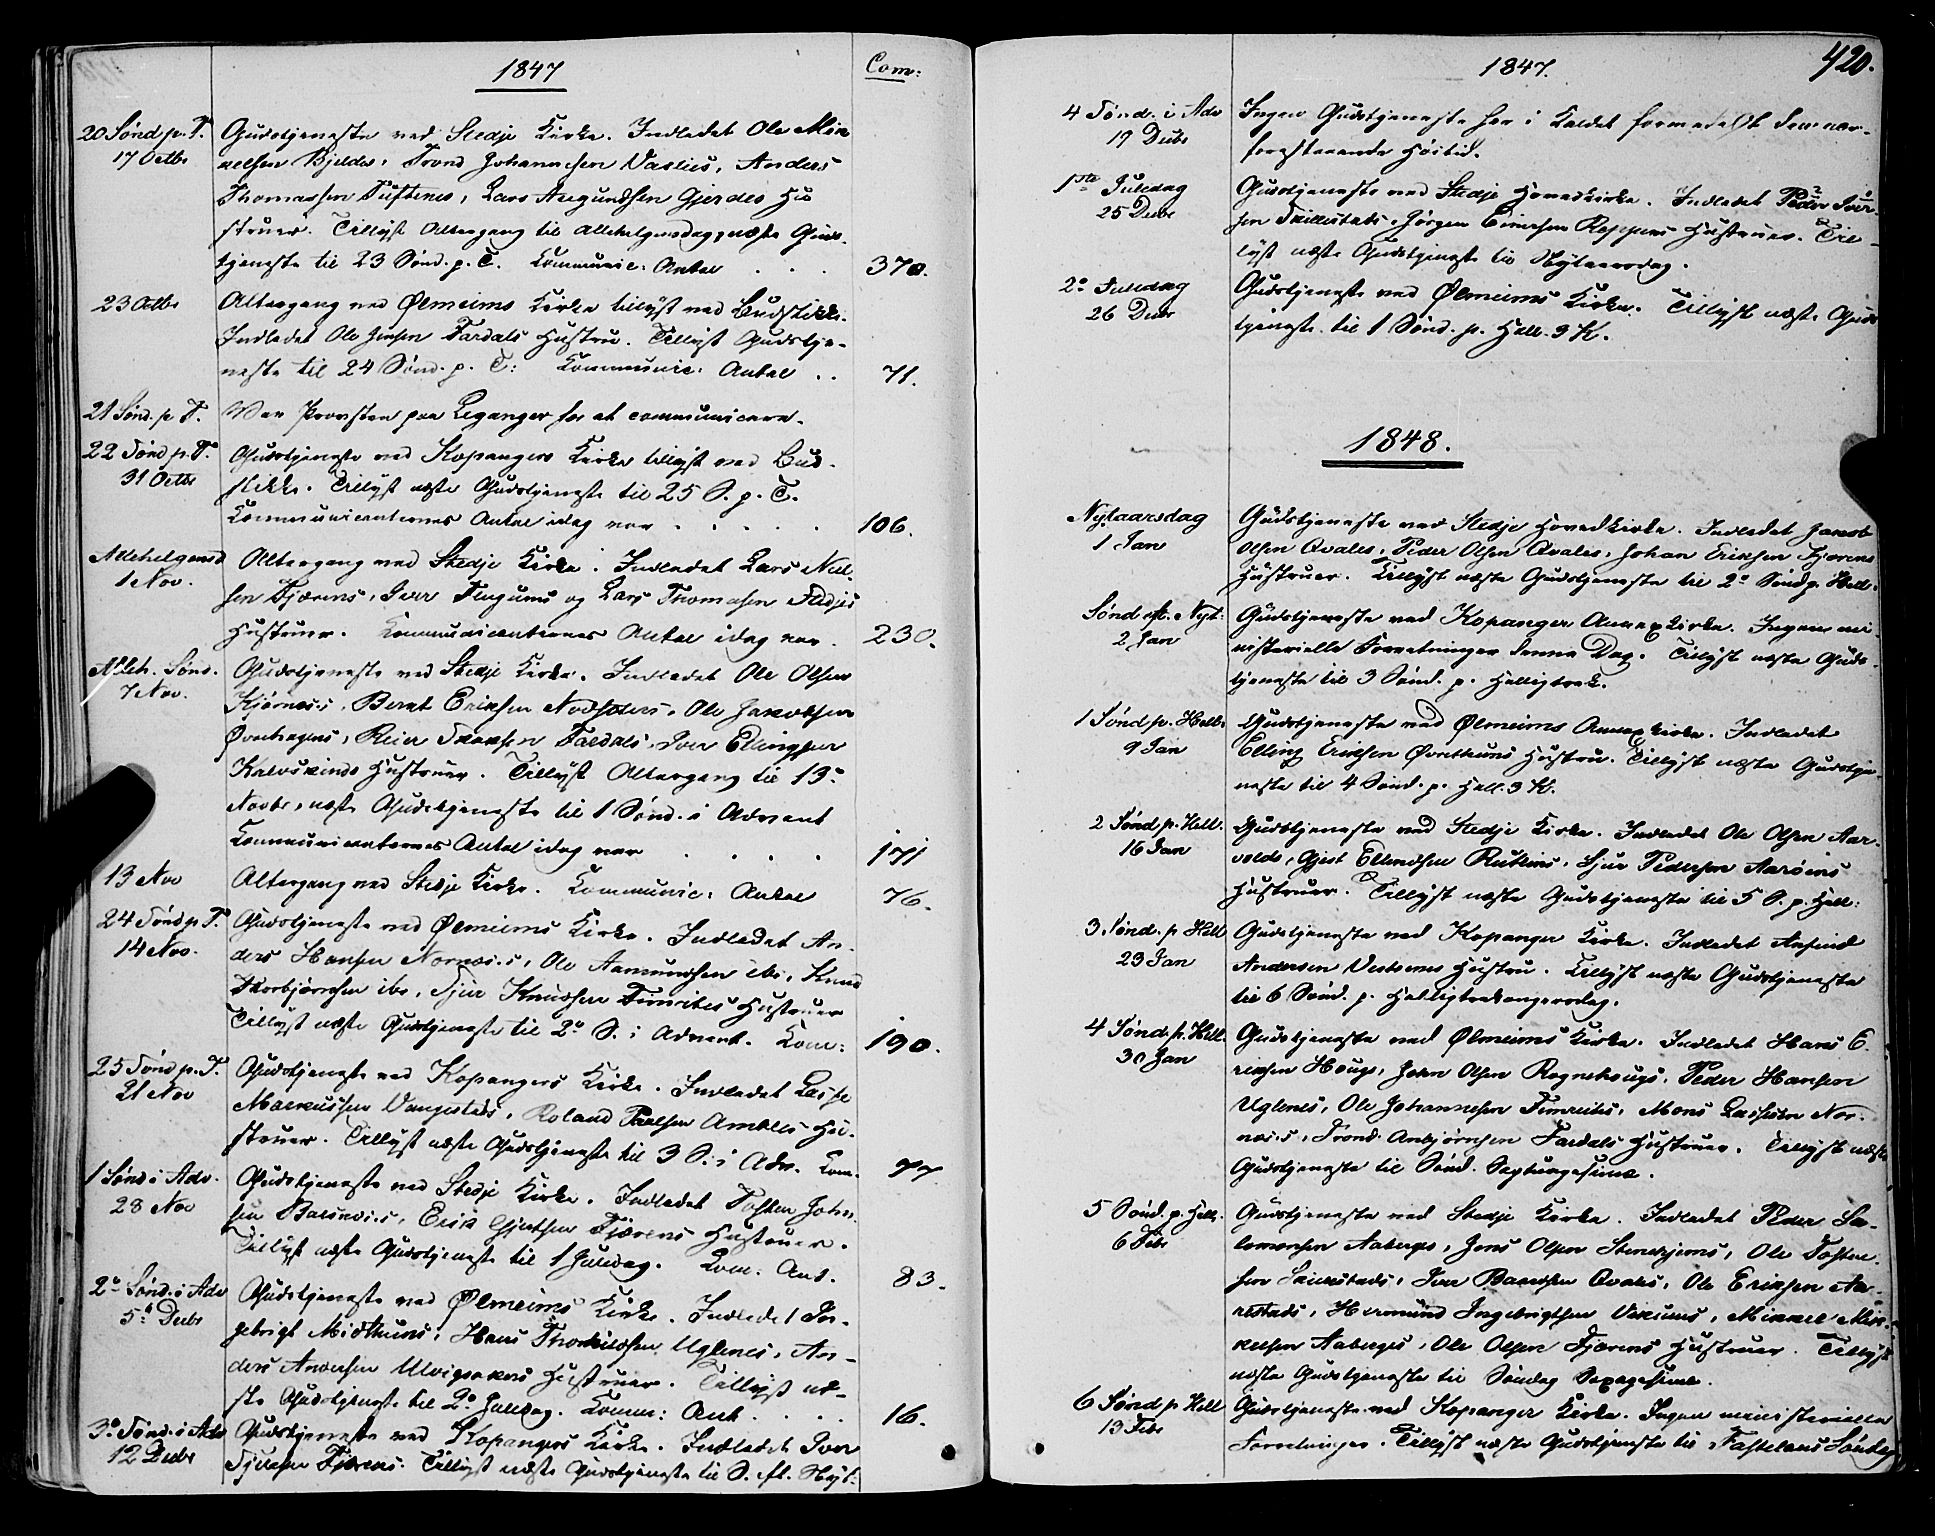 1847
Com:
20 Sønd p. T. Gudstjeneste ved Stedje Kirke. Indledet Ole Mik
17 Octbr kelsen Bjelde, Trond Johannesen Vasliis, Anders
Thomassen Tuftenes, Lars Augundsen Gjerdes Hu
struer. Tillyst Altergang til Allehelgensdag, næste Guds-
tjeneste til 23 Sønd. p. T. Communic: Antal . . . 370.
23 Octbr Altergang ved Ølmeims Kirke tillyst ved Budstikke.
Indledet Ole Jensen Fardals Hustru. Tillyst Gudstje-
neste til 24 Sønd. p. T: Kommunic: Antal . . 71.
21 Sønd. p T. Var Provsten paa Leganger for at communicere.
22 Sønd p. T. Gudstjeneste ved Kopangers Kirke tillyst ved Bud-
31 Octbr stikke. Tillyst næste Gudstjeneste til 25 S. p. T.
Kommunicanternes Antal idag var . . . . . 106.
Allehelgensd Altergang ved Stedje Kirke. Indledet Lars Niel-
1 Nov. sen Fjærens, Iver Flugums og Lars Thomasen Stedjes
Hustruer. Kommunicanternes Antal idag var. 230.
Alleh. Sønd. Gudstjeneste ved Stedje Kirke. Indledet Ole Olsen
7 Nov. Kjørnes's, Bernt Eriksen Ole Jakobsen
Reier Fardals, Iver
Kalvskinds Hustruer. Tillyst Altergang til 13e
Novbr, næste Gudstjeneste til 1 Sønd. i Advent
Communicanternes Antal idag var . . . . 171
13 Nov Altergang ved Stedje Kirke. Communic: Antal 76.
24 Sønd p. T. Gudstjeneste ved Ølmeims Kirke. Indledet An-
14 Nov. ders Hansen Nornes's, Ole Aamundsen ibi, Knud
Thorbjørnsen ibi, Sjur Knudsen Fimreites Hustruer
Tillyst næste Gudstjeneste til 2e S. i Advent. Kom: 190.
25 Sønd p. T. Gudstjeneste ved Kopangers Kirke. Indledet Lasse
21 Nov Markussen Vangestads, Roland Ambles Hu-
struer. Tillyst næste Gudstjeneste til 3 S. i Adv. Kom. 97.
1 Sønd i Adv. Gudstjeneste ved Stedje Kirke. Indledet Tosten John-
28 Nov sen Barsnes's, Erik Gjertsen Fjærens Hustruer.
Tillyst næste Gudstjeneste til 1 Juledag. Kom: Ant. 83.
2e Sønd. i Adv Gudstjeneste ved Ølmeims Kirke. Indledet In-
5e Decbr gebrigt Midthuns, Hans Thorkildsen Uglenes, An-
ders Andersen Ulvigsakers Hustruer. Tillyst næ-
ste Gudstjeneste til 2e Juledag. Komm: Ant. . . . . 16.
3e Sønd. i Adv Gudstjeneste ved Kopangers Kirke. Indledet Iver
12 Decbr Fjærens. Tillyst næste Gudstjeneste til S. eft. Nyt:
1847.
420.
4 Sønd. i Adv Ingen Gudstjeneste her i Kaldet formedelst den nær-
19 Decbr forestaaende Høitid.
1ste Juledag Gudstjeneste ved Stedje Hovedkirke. Indledet Peder Iver-
25 Decbr sen Skillestads, Jørgen Einersen Reppens Hustruer. Til-
lyst næste Gudstjeneste til Nytaarsdag.
2e Juledag Gudstjeneste ved Ølmeims Kirke. Tillyst næste Guds
26 Decbr tjeneste til 1 Sønd. p. Hell. 3 K.
1848.
Nytaarsdag Gudstjeneste ved Stedje Hovedkirke. Indledet Jakob
1 Jan Olsen Qvales, Peder Olsen Qvales, Johan Eriksen Fjærens
Hustruer. Tillyst næste Gudstjeneste til 2e Sønd p. Hell.
Sønd eft. Nyt: Gudstjeneste ved Kopanger Annexkirke. Ingen mi-
2 Jan nisterielle Forretninger denne Dag. Tillyst næste Guds-
tjeneste til 3 Sønd. p. Helligtrek.
1 Sønd p. Hell. Gudstjeneste ved Ølmeims Annexkirke. Indledet
9 Jan Elling Eriksen Hustru. Tillyst næste Gudstje-
neste til 4 Sønd. p. Hell. 3 K.
2 Sønd p. Hell. Gudstjeneste ved Stedje Kirke. Indledet Ole Olsen Aar-
16 Jan volds, Gjest Ellendsen Rutlins, Sjur Pedersen Aarøens
Hustruer. Tillyst næste Gudstjeneste til 5 S. p. Hell:
3 Sønd. p Hell Gudstjeneste ved Kopanger Kirke. Indledet Anfind
23 Jan Andersen Vestrems Hustru. Tillyst næste Gudstjeneste
til 6 Sønd. p. Helligtrekongersdag.
4 Sønd p. Hell. Gudstjeneste ved Ølmeims Kirke. Indledet Hans E-
30 Jan riksen Hougs, John Olsen Rognehougs, Peder Hansen
Uglenes, Ole Johannesen Fimreites, Mons Lassesen Nor-
nes's, Trond Anbjørnsen Fardals Hustruer. Tillyst næste
Gudstjeneste til Sønd. Septuagesima.
5 Sønd. p. Hell. Gudstjeneste ved Stedje Kirke. Indledet Peder Sa-
6 Febr lomonsen Aabergs, Jens Olsen Stenehjems, Ole Tosten-
sen Skillestads, Iver Baardsen Qvales, Ole Eriksen Aa-
restads, Hermund Ingebrigtsen Vikums, Mikkel Mik-
kelsen Aaberges, Ole Olsen Fjærens Hustruer. Tillyst
næste Gudstjeneste til Søndag Sexagesima.
6 Sønd p. Hell Gudstjeneste ved Kopanger Kirke. Ingen ministerielle
13 Febr Forretninger. Tillyst næste Gudstjeneste til Fastelavns Søndag